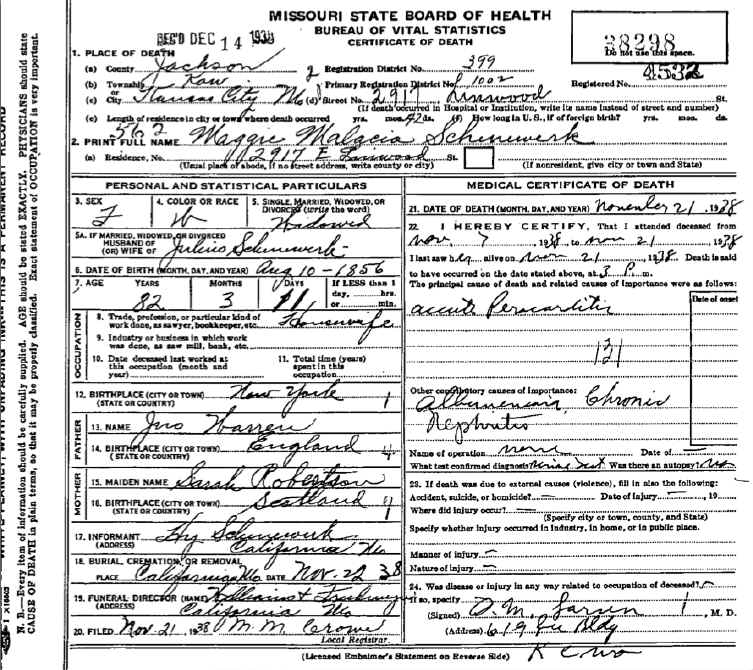 MISSOURI STATE BOARD OF HEALTH
BUREAU OF VITAL STATISTICS
CERTIFICATE OF DEATH
REC'D DEC 14 1938
38298
Do not use this space.
1. PLACE OF DEATH
(a) County Jackson 2 Registration District No. 399
(b) Township Kaw Primary Registration District No. 1002 Registered No. 4532
or
(c) City Kansas City Mo (d) Street No. 2917 Linwood St.
(If death occurred in Hospital or Institution, write its name instead of street and number)
(e) Length of residence in city or town where death occurred yrs. mos. 42 ds. (f) How long in U. S., if of foreign birth? yrs. mos. ds.
562
2. PRINT FULL NAME Maggie Schinewerk
(a) Residence, No. 2917 E Linwood St.
(Usual place of abode, if no street address, write county or city) (If nonresident, give city or town and State)
PERSONAL AND STATISTICAL PARTICULARS
3. SEX F
4. COLOR OR RACE W
5. SINGLE, MARRIED, WIDOWED, OR DIVORCED (write the word) Widowed
5A. IF MARRIED, WIDOWED, OR DIVORCED
HUSBAND OF
(OR) WIFE OF Julius Schinewerk
6. DATE OF BIRTH (MONTH, DAY, AND YEAR) Aug 10 - 1856
7. AGE YEARS MONTHS DAYS If LESS than 1
82 3 11 day, hrs.
or min.
OCCUPATION
8. Trade, profession, or particular kind of
work done, as sawyer, bookkeeper, etc. Housewife
9. Industry or business in which work
was done, as saw mill, bank, etc.
10. Date deceased last worked at
this occupation (month and
year)
11. Total time (years)
spent in this
occupation
12. BIRTHPLACE (CITY OR TOWN) New York 1
(STATE OR COUNTRY)
FATHER
13. NAME Jno Warren
14. BIRTHPLACE (CITY OR TOWN) England 4
(STATE OR COUNTRY)
MOTHER
15. MAIDEN NAME Sarah Robertson
16. BIRTHPLACE (CITY OR TOWN) Scotland 4
(STATE OR COUNTRY)
17. INFORMANT Hy Schinewerk
(ADDRESS) California Mo
18. BURIAL, CREMATION, OR REMOVAL
PLACE California Mo DATE Nov. 22 38
19. FUNERAL DIRECTOR (NAME) Williams &
(ADDRESS) California Mo
20. FILED Nov 21, 1938 M. M. Crowe
Local Registrar.
MEDICAL CERTIFICATE OF DEATH
21. DATE OF DEATH (MONTH, DAY, AND YEAR) November 21, 1938
22. I HEREBY CERTIFY, That I attended deceased from
Nov 7, 1938, to Nov 21, 1938
I last saw her alive on Nov 21, 1938. Death is said
to have occurred on the date stated above, at 3 P. m.
The principal cause of death and related causes of importance were as follows:
Date of onset
acute Pericarditis
131
Other contributory causes of importance:
Chronic
Nephritis
Name of operation none Date of
What test confirmed diagnosis? Was there an autopsy? No
23. If death was due to external causes (violence), fill in also the following:
Accident, suicide, or homicide? Date of injury , 19
Where did injury occur?
(Specify city or town, county, and State)
Specify whether injury occurred in industry, in home, or in public place.
Manner of injury
Nature of injury
24. Was disease or injury in any way related to occupation of deceased?
If so, specify
(Signed) O. M. Larsen, M. D.
(Address) 619 Bldg
K C Mo
(Licensed Embalmer's Statement on Reverse Side)
N. B.—Every item of information should be carefully supplied. AGE should be stated EXACTLY. PHYSICIANS should state
CAUSE OF DEATH in plain terms, so that it may be properly classified. Exact statement of OCCUPATION is very important.